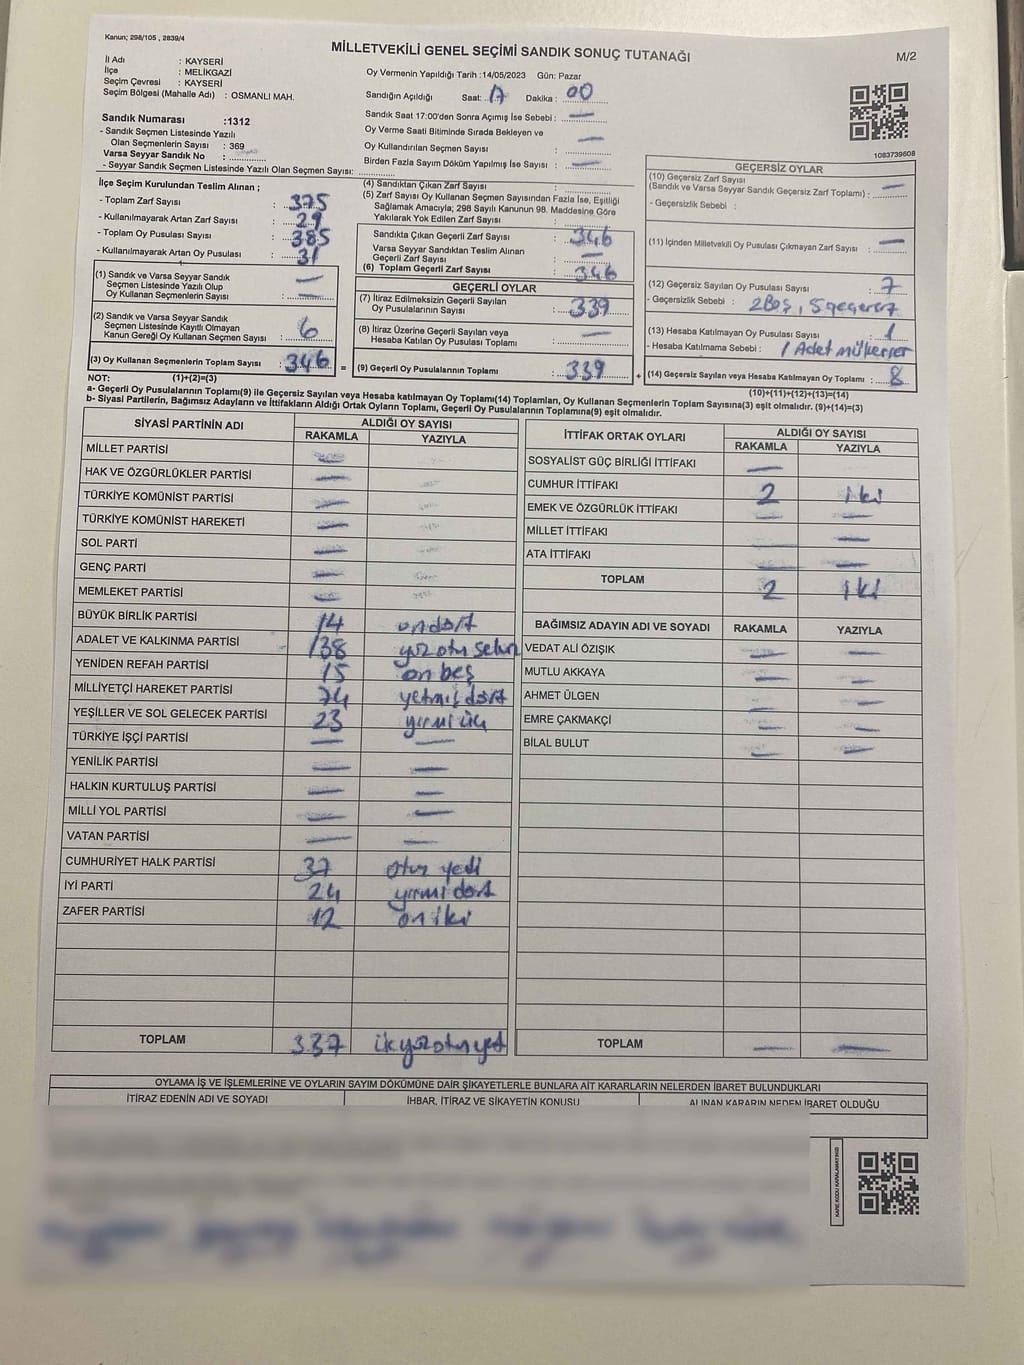 Kanun; 298/105 , 2839/4
MİLLETVEKİLİ GENEL SEÇİMİ SANDIK SONUÇ TUTANAĞI
M/2
İl Adı : KAYSERİ
İlçe : MELİKGAZİ
Seçim Çevresi : KAYSERİ
Seçim Bölgesi (Mahalle Adı) : OSMANLI MAH.
Oy Vermenin Yapıldığı Tarih :14/05/2023 Gün: Pazar
Sandığın Açıldığı Saat: 17 Dakika : 00
Sandık Saat 17:00'den Sonra Açımış İse Sebebi : —
Oy Verme Saati Bitiminde Sırada Bekleyen ve
Oy Kullandırılan Seçmen Sayısı : —
Birden Fazla Sayım Döküm Yapılmış İse Sayısı : —
Sandık Numarası :1312
- Sandık Seçmen Listesinde Yazılı
Olan Seçmenlerin Sayısı : 369
Varsa Seyyar Sandık No :
- Seyyar Sandık Seçmen Listesinde Yazılı Olan Seçmen Sayısı:
1083739608
İlçe Seçim Kurulundan Teslim Alınan ;
- Toplam Zarf Sayısı : 375
- Kullanılmayarak Artan Zarf Sayısı : 29
- Toplam Oy Pusulası Sayısı : 385
- Kullanılmayarak Artan Oy Pusulası : 31
(1) Sandık ve Varsa Seyyar Sandık
Seçmen Listesinde Yazılı Olup
Oy Kullanan Seçmenlerin Sayısı : —
(2) Sandık ve Varsa Seyyar Sandık
Seçmen Listesinde Kayıtlı Olmayan
Kanun Gereği Oy Kullanan Seçmenlerin Sayısı : 6
(3) Oy Kullanan Seçmenlerin Toplam Sayısı : 346 =
(1)+(2)=(3)
(4) Sandıktan Çıkan Zarf Sayısı :
(5) Zarf Sayısı Oy Kullanan Seçmen Sayısından Fazla İse, Eşitliği
Sağlamak Amacıyla; 298 Sayılı Kanunun 98. Maddesine Göre
Yakılarak Yok Edilen Zarf Sayısı :
Sandıkta Çıkan Geçerli Zarf Sayısı : 346
Varsa Seyyar Sandıktan Teslim Alınan
Geçerli Zarf Sayısı : —
(6) Toplam Geçerli Zarf Sayısı : 346
GEÇERLİ OYLAR
(7) İtiraz Edilmeksizin Geçerli Sayılan
Oy Pusulalarının Sayısı : 339
(8) İtiraz Üzerine Geçerli Sayılan veya
Hesaba Katılan Oy Pusulası Toplamı : —
(9) Geçerli Oy Pusulalarının Toplamı : 339 +
GEÇERSİZ OYLAR
(10) Geçersiz Zarf Sayısı
(Sandık ve Varsa Seyyar Sandık Geçersiz Zarf Toplamı) : —
- Geçersizlik Sebebi :
(11) İçinden Milletvekili Oy Pusulası Çıkmayan Zarf Sayısı : —
(12) Geçersiz Sayılan Oy Pusulası Sayısı : 7
- Geçersizlik Sebebi : 2Boş, 5geçersiz
(13) Hesaba Katılmayan Oy Pusulası Sayısı : 1
- Hesaba Katılmama Sebebi : 1 Adet mükerrer
(14) Geçersiz Sayılan veya Hesaba Katılmayan Oy Toplamı : 8
(10)+(11)+(12)+(13)=(14)
NOT:
a- Geçerli Oy Pusulalarının Toplamı(9) ile Geçersiz Sayılan veya Hesaba katılmayan Oy Toplamı(14) Toplamları, Oy Kullanan Seçmenlerin Toplam Sayısına(3) eşit olmalıdır. (9)+(14)=(3)
b- Siyasi Partilerin, Bağımsız Adayların ve İttifakların Aldığı Ortak Oyların Toplamı, Geçerli Oy Pusulalarının Toplamına(9) eşit olmalıdır.
SİYASİ PARTİNİN ADI ALDIĞI OY SAYISI
RAKAMLA YAZIYLA
MİLLET PARTİSİ —
HAK VE ÖZGÜRLÜKLER PARTİSİ —
TÜRKİYE KOMÜNİST PARTİSİ —
TÜRKİYE KOMÜNİST HAREKETİ —
SOL PARTİ —
GENÇ PARTİ —
MEMLEKET PARTİSİ —
BÜYÜK BİRLİK PARTİSİ 14 ondört
ADALET VE KALKINMA PARTİSİ 138 yüz otuz sekiz
YENİDEN REFAH PARTİSİ 15 on beş
MİLLİYETÇİ HAREKET PARTİSİ 74 yetmiş dört
YEŞİLLER VE SOL GELECEK PARTİSİ 23 yirmi üç
TÜRKİYE İŞÇİ PARTİSİ — —
YENİLİK PARTİSİ — —
HALKIN KURTULUŞ PARTİSİ — —
MİLLİ YOL PARTİSİ — —
VATAN PARTİSİ — —
CUMHURİYET HALK PARTİSİ 37 otuz yedi
İYİ PARTİ 24 yirmi dört
ZAFER PARTİSİ 12 on iki
TOPLAM 337
İTTİFAK ORTAK OYLARI ALDIĞI OY SAYISI
RAKAMLA YAZIYLA
SOSYALİST GÜÇ BİRLİĞİ İTTİFAKI —
CUMHUR İTTİFAKI 2 iki
EMEK VE ÖZGÜRLÜK İTTİFAKI — —
MİLLET İTTİFAKI —
ATA İTTİFAKI — —
TOPLAM 2 iki
BAĞIMSIZ ADAYIN ADI VE SOYADI RAKAMLA YAZIYLA
VEDAT ALİ ÖZIŞIK — —
MUTLU AKKAYA — —
AHMET ÜLGEN — —
EMRE ÇAKMAKÇİ — —
BİLAL BULUT — —
TOPLAM — —
OYLAMA İŞ VE İŞLEMLERİNE VE OYLARIN SAYIM DÖKÜMÜNE DAİR ŞİKAYETLERLE BUNLARA AİT KARARLARIN NELERDEN İBARET BULUNDUKLARI
İTİRAZ EDENİN ADI VE SOYADI İHBAR, İTİRAZ VE ŞİKAYETİN KONUSU ALINAN KARARIN NEDEN İBARET OLDUĞU
KARE KODU KARALAMAYINIZ!